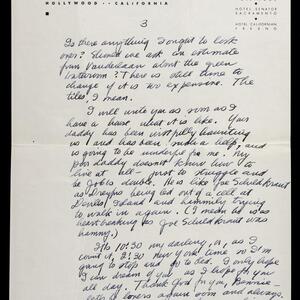 HOLLYWOOD · · CALIFORNIA
HOTEL SENATOR
SACRAMENTO
HOTEL CALIFORNIAN
FRESNO
3
Is there anything I ought to look
over? Should we ask an estimate
from Vandelaan about the green
bathroom? There is still time to
change if it is too expensive. The
tiles, I mean.
I will write you as soon as I
have a hint what it is like. Your
daddy has been
us and has been a help, and
is going to be wonderful for me. My
poor daddy doesn't know how to
live at all - not to struggle and
be Job's double. He is like Joe Schildkraut
as Dreyfus being let out of a cell at
Devil's Island and hammily trying
to walk in again. (I mean he is as
heartbreaking as Joe Schildkraut was
hammy.)
It is 10:30 my darling, or, as I
count it, 2:30 New York time so I'm
going to stop and go to bed. I only hope
I can dream of you as I hope for you
all day. Thank God for you,
lovers again soon and always